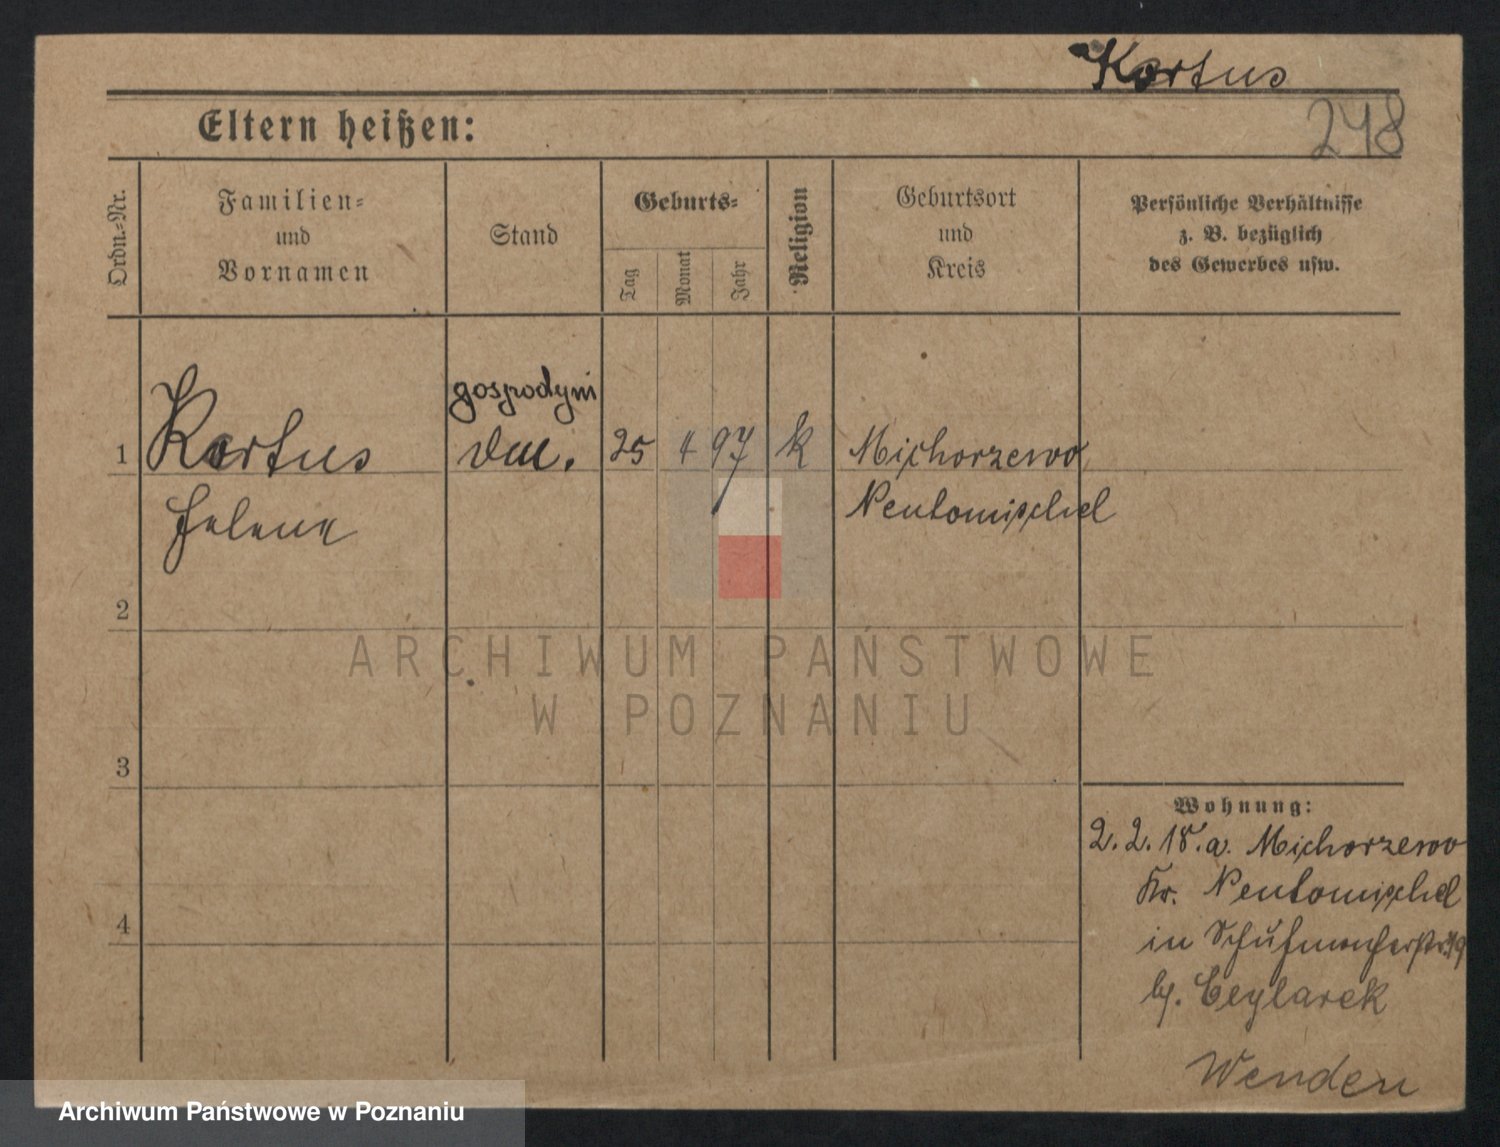 Kortus
248
Eltern heißen:
Ordn.-Nr.
Familien-
und
Vornamen
Stand
Geburts-
Tag
Monat
Jahr
Religion
Geburtsort
und
Kreis
Persönliche Verhältnisse
z. B. bezüglich
des Gewerbes usw.
gospodyni
1 Kortus 25 4 97 k Michorzewo
Helena Neutomischel
2
ARCHIWUM PAŃSTWOWE
W POZNANIU
3
Wohnung:
2. 2. 18. a. Michorzewo
Kr. Neutomischel
in Schuhmacherstr. 19
b/.
4
Wenden
Archiwum Państwowe w Poznaniu